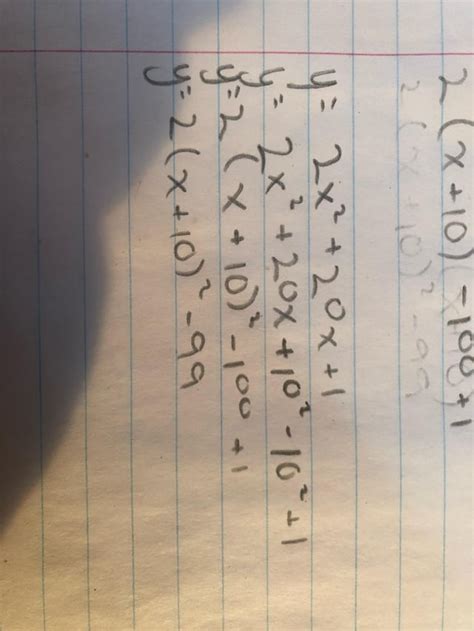 2(x+10) - 100 + 1
2(x+10)² - 99
y = 2x² + 20x + 1
y = 2x² + 20x + 10² - 10² + 1
y = 2(x + 10)² - 100 + 1
y = 2(x+10)² - 99